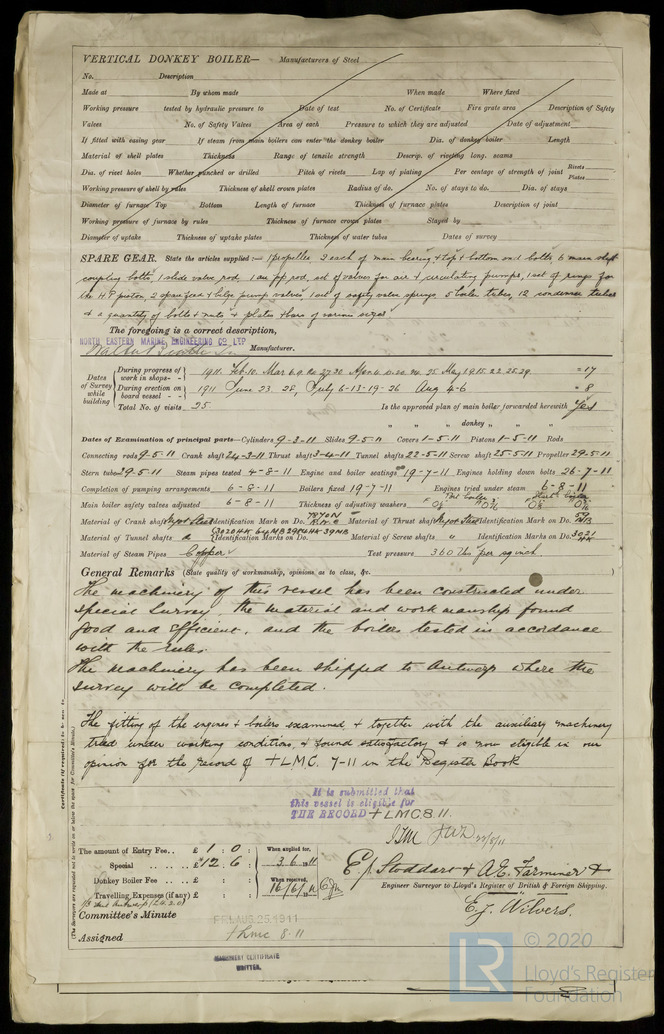 VERTICAL DONKEY BOILER— Manufacturers of Steel
No. Description
Made at By whom made When made Where fixed
Working pressure tested by hydraulic pressure to Date of test No. of Certificate Fire grate area Description of Safety
Valves No. of Safety Valves Area of each Pressure to which they are adjusted Date of adjustment
If fitted with easing gear If steam from main boilers can enter the donkey boiler Dia. of donkey boiler Length
Material of shell plates Thickness Range of tensile strength Descrip. of riveting long. seams
Dia. of rivet holes Whether punched or drilled Pitch of rivets Lap of plating Per centage of strength of joint Rivets Plates
Working pressure of shell by rules Thickness of shell crown plates Radius of do. No. of stays to do. Dia. of stays
Diameter of furnace Top Bottom Length of furnace Thickness of furnace plates Description of joint
Working pressure of furnace by rules Thickness of furnace crown plates Stayed by
Diameter of uptake Thickness of uptake plates Thickness of water tubes Dates of survey
SPARE GEAR. State the articles supplied:— 1 propeller, 2 each of main bearing & top & bottom end bolts, 6 main shaft
coupling bolts, 1 slide valve rod, 1 air pp rod, set of valves for air & circulating pumps, 1 set of rings for
the H.P piston, 2 spare feed & bilge pump valves, 1 set of safety valve springs 5 boiler tubes, 12 condenser tubes
& a quantity of bolts & nuts, & plates & bars of various sizes.
The foregoing is a correct description,
NORTH EASTERN MARINE ENGINEERING CO. LTD
Manufacturer.
Dates of Survey while building
During progress of work in shops- - 1911. Feb. 10. Mar 6.9. 27.30 Apr. 25 May 1. 9. 15. 22. 25. 29. = 17
During erection on board vessel - - 1911 June 23 28, July 6-13-19-26 Aug 4-6 = 8
Total No. of visits 25 Is the approved plan of main boiler forwarded herewith Yes
" " " donkey " " "
Dates of Examination of principal parts—Cylinders 9-3-11 Slides 9-5-11 Covers 1-5-11 Pistons 1-5-11 Rods
Connecting rods 9-5-11 Crank shaft 24-3-11 Thrust shaft 3-4-11 Tunnel shafts 22-5-11 Screw shaft 25-5-11 Propeller 29-5-11
Stern tube 29-5-11 Steam pipes tested 4-8-11 Engine and boiler seatings 19-7-11 Engines holding down bolts 26-7-11
Completion of pumping arrangements 6-8-11 Boilers fixed 19-7-11 Engines tried under steam 6-8-11
Main boiler safety valves adjusted 6-8-11 Thickness of adjusting washers
Material of Crank shaft Ingot Steel Identification Mark on Do. Material of Thrust shaft Ingot Steel Identification Mark on Do.
Material of Tunnel shafts " Identification Marks on Do. Material of Screw shafts " Identification Marks on Do. 3021
Material of Steam Pipes Copper Test pressure 360 lbs per sq inch
General Remarks (State quality of workmanship, opinions as to class, &c.
The machinery of this vessel has been constructed under
special Survey, the material and workmanship found
good and efficient, and the boilers tested in accordance
with the rules.
The machinery has been shipped to Antwerp where the
survey will be completed.
The fitting of the engines & boilers examined & together with the auxiliary machinery
tried under working conditions, & found satisfactory & is now eligible in our
opinion for the record of + LMC. 7-11 in the Register Book
It is submitted that
this vessel is eligible for
THE RECORD + LMC 8. 11.
22/8/11
The amount of Entry Fee.. £ 1 : 0 : When applied for.
Special .. .. £ 12 : 6 : 3.6.1911
Donkey Boiler Fee .. .. £ : : When received.
Travelling Expenses (if any) £ : : 16/6/11
E. J. Stoddart & A. E. Farminer &
Engineer Surveyor to Lloyd's Register of British & Foreign Shipping.
E. J. Wilvers.
Committee's Minute FRI. AUG. 25. 1911
Assigned + Lmc 8.11
MACHINERY CERTIFICATE
WRITTEN.
Certificate (if required) to be sent to
(The Surveyors are requested not to write on or below the space for Committee's Minute.)
LR © 2020
Lloyd's Register
Foundation